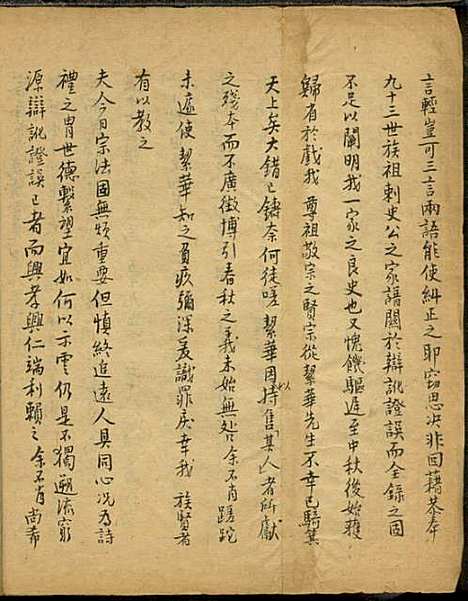 言輕豈可三言兩語能使糾正之耶竊思决非回藉恭奉
九十三世族祖刺史公之家譜關於辯訛證誤而全錄之固
不足以闡明我一家之良史也又愧饑驅遲至中秋後始獲
歸省於戲我尊祖敬宗之賢宗從絜華先生不幸已騎箕
天上矣大錯已鑄奈何徒嗟絜華因持以售其人者所獻
之殘本而不廣徵博引春秋之義未始無咎余不肖蹉跎
未遑使絜華知之負疚彌深爰識罪戾幸我族賢者
有以教之
夫今日宗法固無須重要但慎終追遠人具同心况為詩
禮之胄世德繫望宜如何以示雲仍是不獨遡流窮
源辯訛證誤已者而興孝興仁端利賴之余不肖尚希